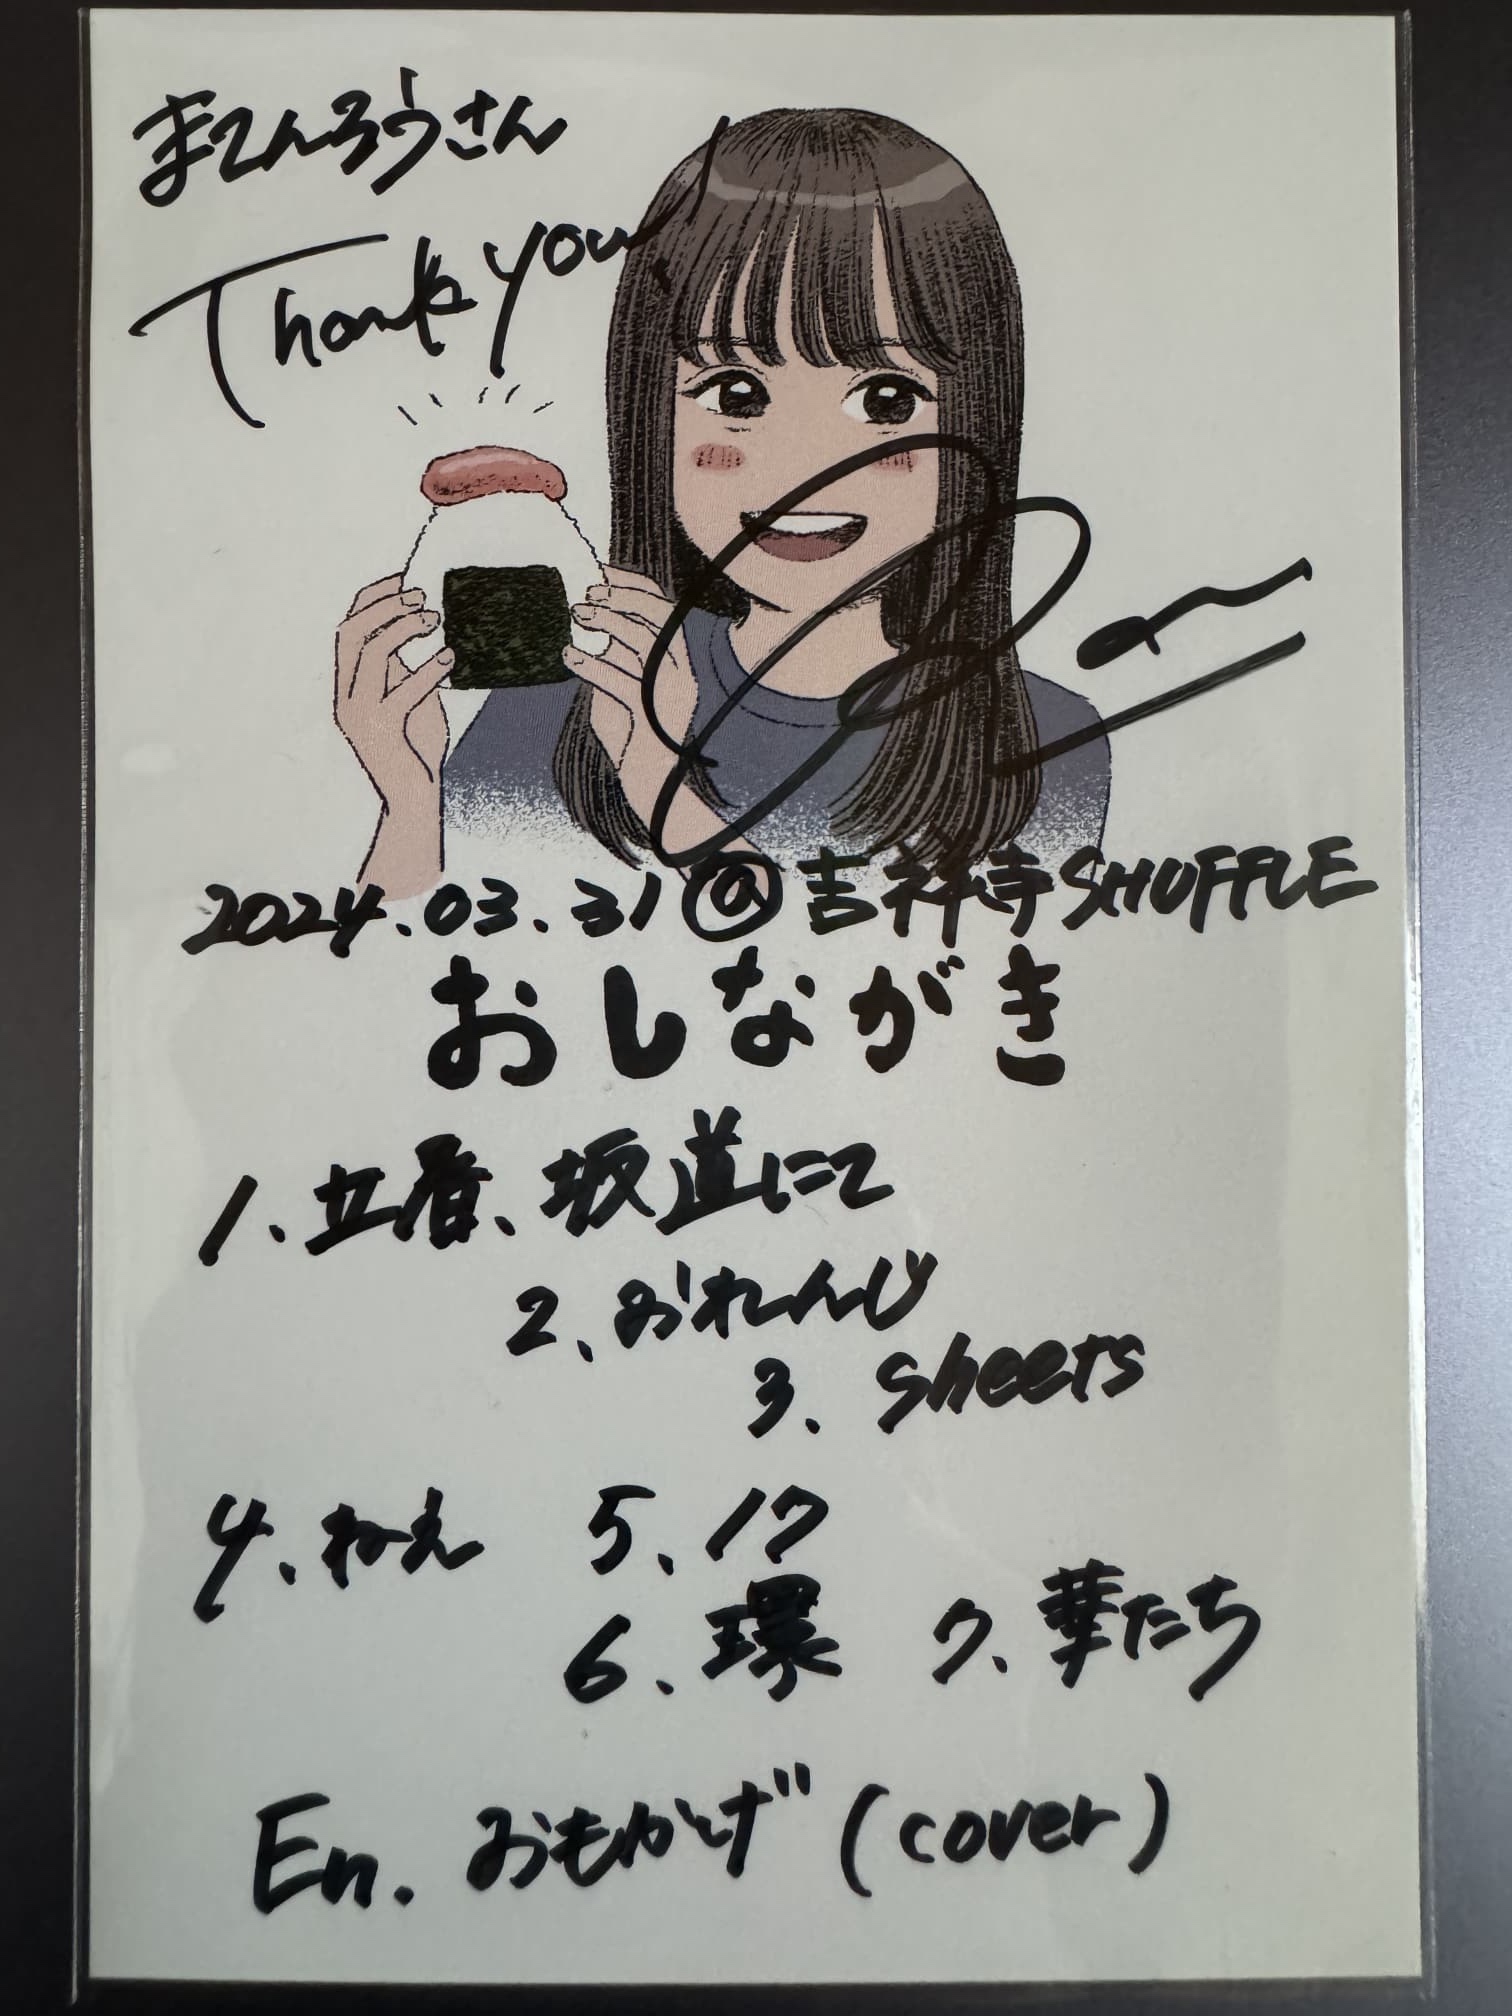 まてんろうさん
Thank you!
2024.03.31@吉祥寺SHUFFLE
おしながき
1、立春、坂道にて
2、おれんじ
3. sheets
4、ねえ 5、17
6、環 7、華たち
En. おもかげ(cover)